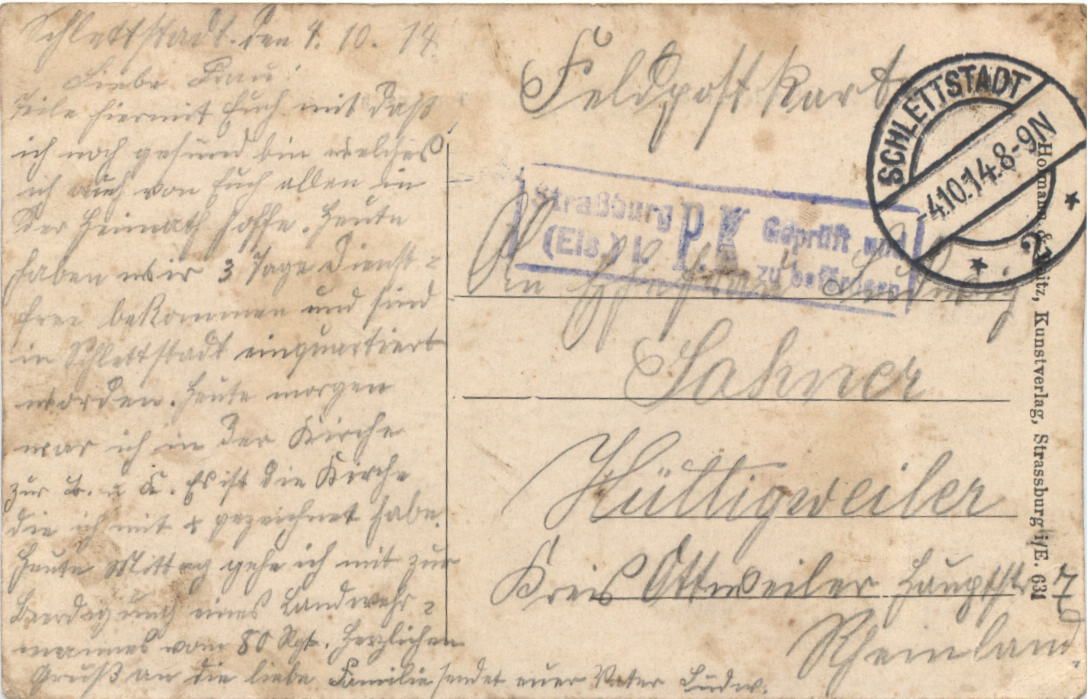 Schlettstadt. den 4. 10. 14
Liebe Frau!
Teile hiermit Euch mit daß
ich noch gesund bin welches
ich auch von Euch allen in
der Heimath hoffe. Heute
haben wir 3 Tage dienst=
frei bekommen und sind
in Schlettstadt einquartiert
worden. Heute morgen
war ich in der Kirche
zur B. u K. Es ist die Kirche
die ich mit x gezeichnet habe.
Heute Mittag gehe ich mit zur
Beerdigung eines Landwehr=
mannes vom 80 Rgt. Herzlichen
Gruß an die liebe Familie sendet euer Vater Ludw.
Feldpostkarte
SCHLETTSTADT
-4.10.14.8-9N
* 2 *
Straßburg P.K. Geprüft und
(Els.) zu befördern
An Ehefrau Ludwig
Sahner
Hüttigweiler
Kreis Ottweiler Hauptstr
Rheinland.
Kunstverlag, Strassburg i/E. 631